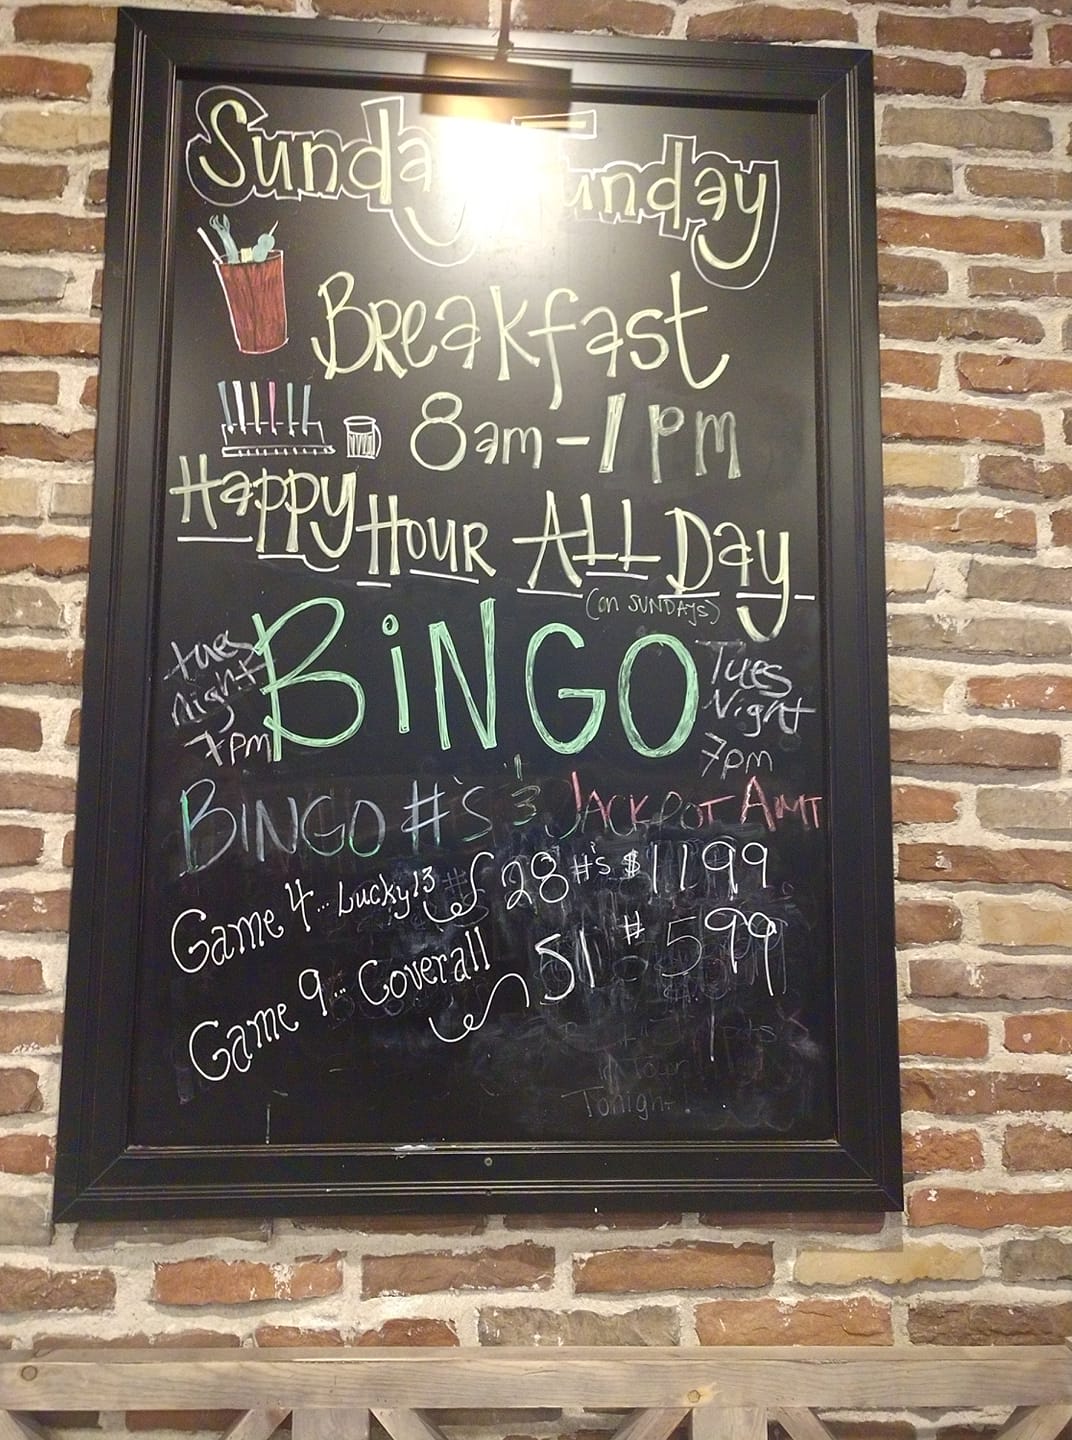 Sunday Funday
Breakfast
8am-1pm
Happy Hour All Day
(on SUNDAYS)
tues night 7pm
BiNGO
Tues Night 7pm
BINGO #'s & JACKPOT AMT
Game 4... Lucky13 28 #'s $1199
Game 9... Coverall 51 # 599
Tonight!